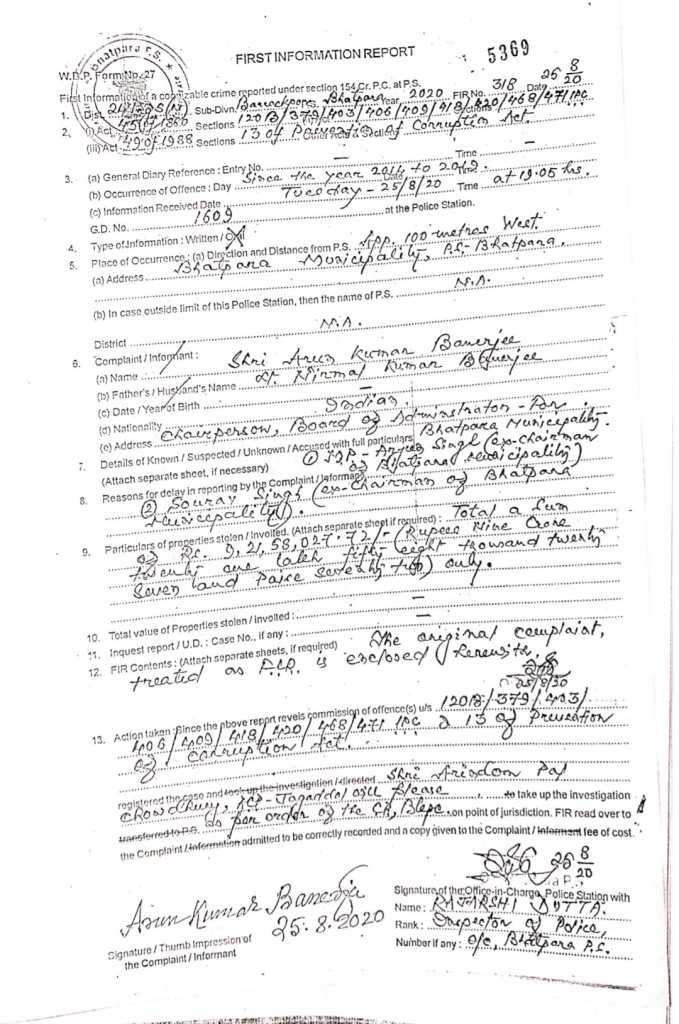 Bhatpara P.S.
FIRST INFORMATION REPORT
5369
W.B.P. Form No. 27
First Information of a cognizable crime reported under section 154 Cr. P.C. at P.S.
25 8/20
1. Dist. Sub-Divn. Barrackpore Bhatpara Year 2020 FIR No. 318 Date
2. (i) Act 45 of 1860 Sections 120B/379/403/406/409/418/420/468/471 IPC
(iii) Act 49 of 1988 Sections 13 of Prevention of Corruption Act.
3. (a) General Diary Reference : Entry No. — Time —
(b) Occurrence of Offence : Day Since the year 2014 to 2019. Time
(c) Information Received Date Tuesday - 25/8/20 Time at 19.05 hrs.
G.D. No. 1609 at the Police Station.
4. Type of Information : Written / Oral
5. Place of Occurrence : (a) Direction and Distance from P.S. App. 100 metres West.
(a) Address Bhatpara Municipality, P.S.- Bhatpara.
(b) In case outside limit of this Police Station, then the name of P.S. N.A.
District N.A.
6. Complaint / Informant :
(a) Name Shri Arun Kumar Banerjee
(b) Father's / Husband's Name Lt. Nirmal Kumar Banerjee
(c) Date / Year of Birth —
(d) Nationality Indian.
(e) Address Chairperson, Board of Administrator - For Bhatpara Municipality.
7. Details of Known / Suspected / Unknown / Accused with full particulars
(Attach separate sheet, if necessary) ① Singh (ex-chairman of Bhatpara Municipality)
8. Reasons for delay in reporting by the Complaint / Informant
② Sourav Singh (ex-Chairman of Bhatpara
Municipality).
9. Particulars of properties stolen / Involted. (Attach separate sheet if required) : Total a Sum
of Rs. 9,21,58,027.72/- (Rupees Nine Crore
twenty one lakh fifty eight thousand twenty
Seven and Paise Seventy two) only.
10. Total value of Properties stolen / involted : —
11. Inquest report / U.D. : Case No., if any : —
12. FIR Contents : (Attach separate sheets, if required) The original complaint,
treated as F.I.R. is enclosed herewith.
25/8/20
13. Action taken : Since the above report revels commission of offence(s) u/s 120B/379/403/
406/409/418/420/468/471 IPC & 13 of Prevention
of Corruption Act.
registered the case and took up the investigation / directed Shri Arindam Pal
Chowdhury, ACP - Jagaddal will please to take up the investigation
transferred to P.S. as per order of the on point of jurisdiction. FIR read over to
the Complaint / Information admitted to be correctly recorded and a copy given to the Complaint / Informant fee of cost.
25 8/20
Arun Kumar Banerjee
25.8.2020
Signature / Thumb Impression of
the Complaint / Informant
Signature of the Office-in-Charge, Police Station with
Name : RAJARSHI DUTTA.
Rank : Inspector of Police,
Number if any : O/C, Bhatpara P.S.